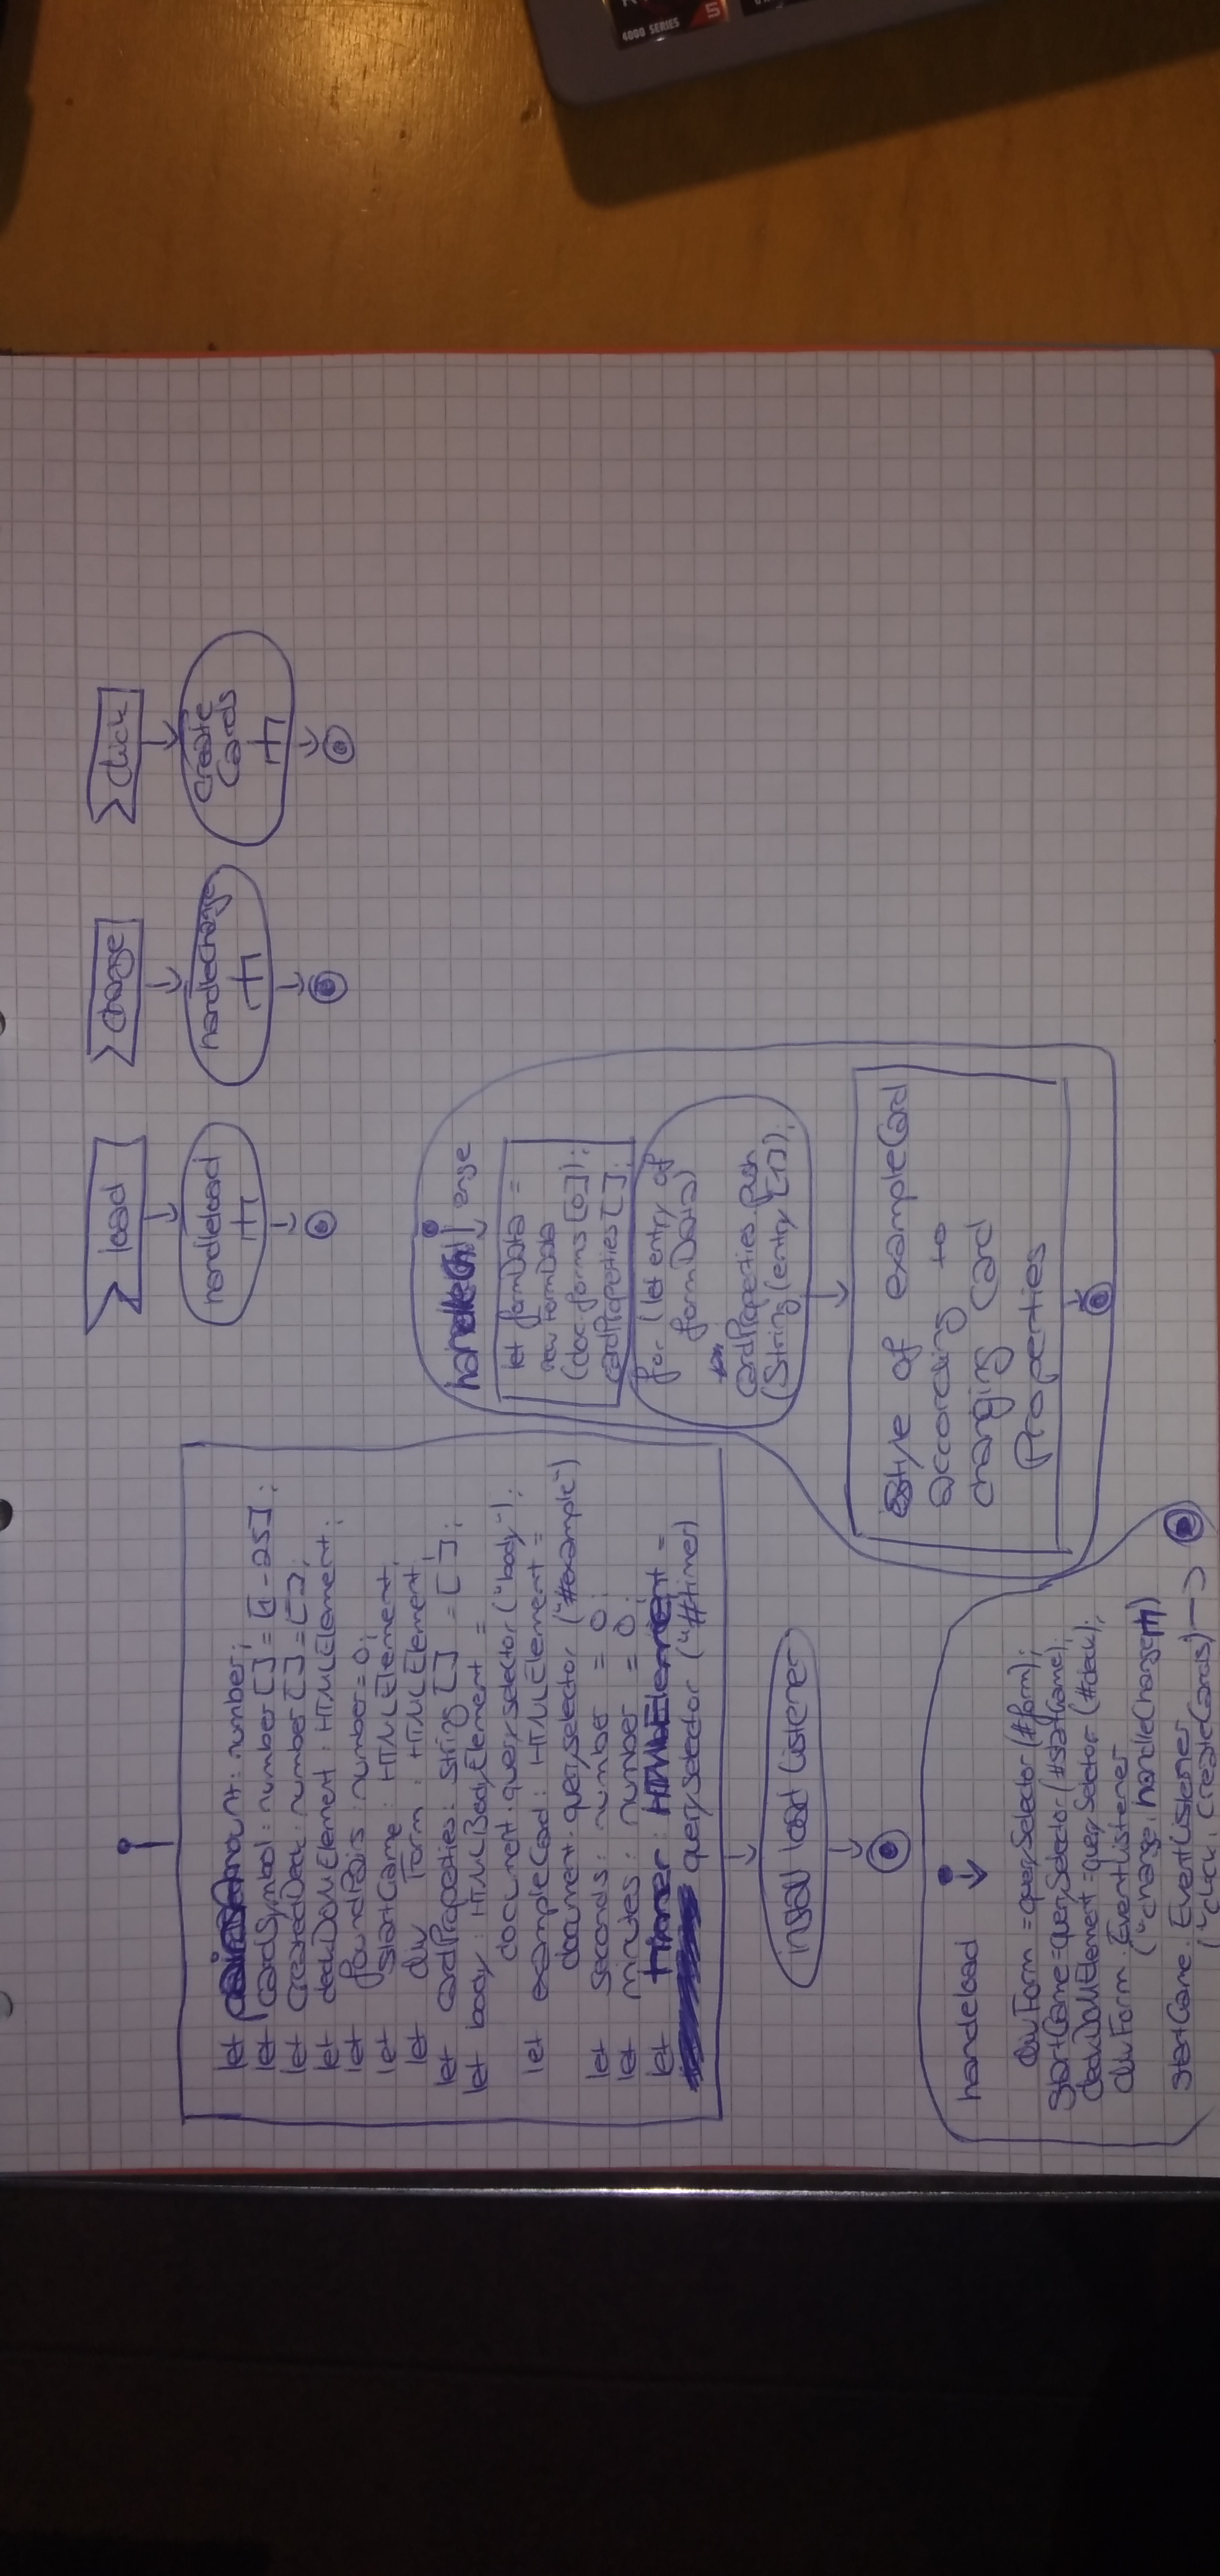 let pairsAmount: number;
let cardSymbol: number[] = [1-25];
let CreatedDeck: number[] = [];
let deckDOMElement: HTMLElement;
let foundPairs: number = 0;
let StartGame: HTMLElement
let divForm: HTMLElement
let cardProperties: String[] = [];
let body: HTMLBodyElement =
document.queryselector("body");
let exampleCard: HTMLElement =
document.queryselector("#example")
let seconds: number = 0;
let minutes: number = 0;
let Timer: HTMLElement =
queryselector("#timer)
install load Listener
handeload
divForm = querySelector(#form);
StartGame = querySelector(#startGame);
deckDOMElement = query Selector(#deck);
divForm.EventListener
("change, handleChange)
StartGame.EventListener
("click, CreateCards)
load
handleload
change
handleChange
click
Create
Cards
handleChange
let formData =
new FormData
(doc.forms[0]);
cardProperties[];
for (let entry of
formData)
cardProperties.push
(String(entry[1]);
Style of exampleCard
according to
changing Card
Properties
4000 SERIES
5